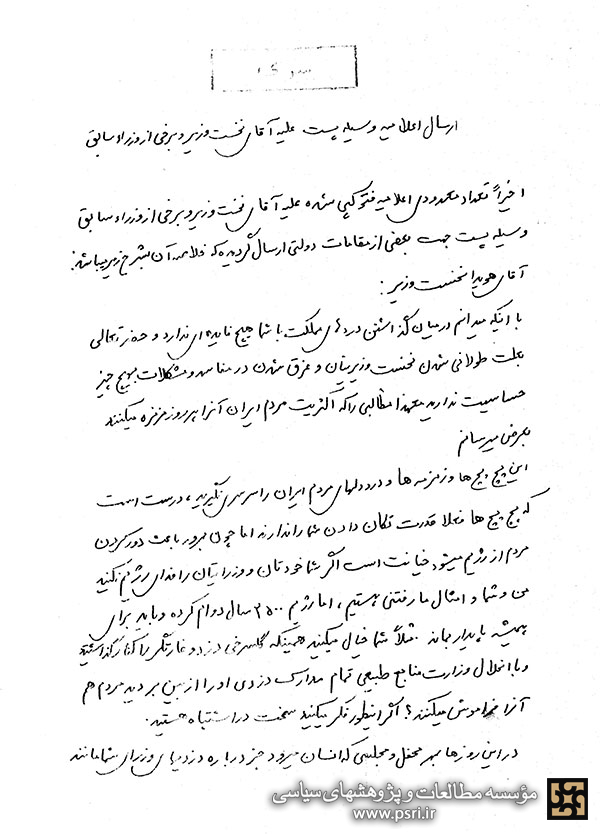 سری
ارسال اعلامیه وسیله پست علیه آقای نخست وزیر و برخی از وزراء سابق
اخیراً تعداد معدودی اعلامیه فتوکپی شده علیه آقای نخست وزیر و برخی از وزراء سابق
وسیله پست جهت بعضی از مقامات دولتی ارسال گردیده که خلاصه آن بشرح زیر میباشد:
آقای هویدا نخست وزیر:
با آنکه میدانم درمیان گذاشتن دردهای مملکت با شما هیچ فایده ای ندارد و حضرتعالی
بعلت طولانی شدن نخست وزیریتان و غرق شدن در مفاسد و مشکلات بهیچ چیز
حساسیت ندارید معهذا مطالبی را که اکثریت مردم ایران آنرا هر روز مزمزه میکنند
بعرض میرسانم
این پچ پچ ها و زمزمه ها و درددلهای مردم ایران را سرسری نگیرید، درست است
که پچ پچ ها فعلا قدرت تکان دادن شما را ندارند اما چون بمرور باعث دور کردن
مردم از رژیم میشود خیانت است اگر شما خودتان و وزرایتان را فدای رژیم نکنید
من و شما و امثال ما رفتنی هستیم، اما رژیم ۲۵۰۰ سال دوام کرده و باید برای
همیشه پایدار بماند مثلاً شما خیال میکنید همینکه گلسرخی دزد و غارتگر را کنار گذاشتید
و با انحلال وزارت منابع طبیعی تمام مدارک دزدی او را از بین بردید مردم هم
آنرا فراموش میکنند؟ اگر اینطور فکر میکنید سخت در اشتباه هستید.
در این روزها بهر محفل و مجلسی که انسان میرود جز درباره دزدیهای وزرای شما مانند
مؤسسه مطالعات و پژوهشهای سیاسی
www.psri.ir